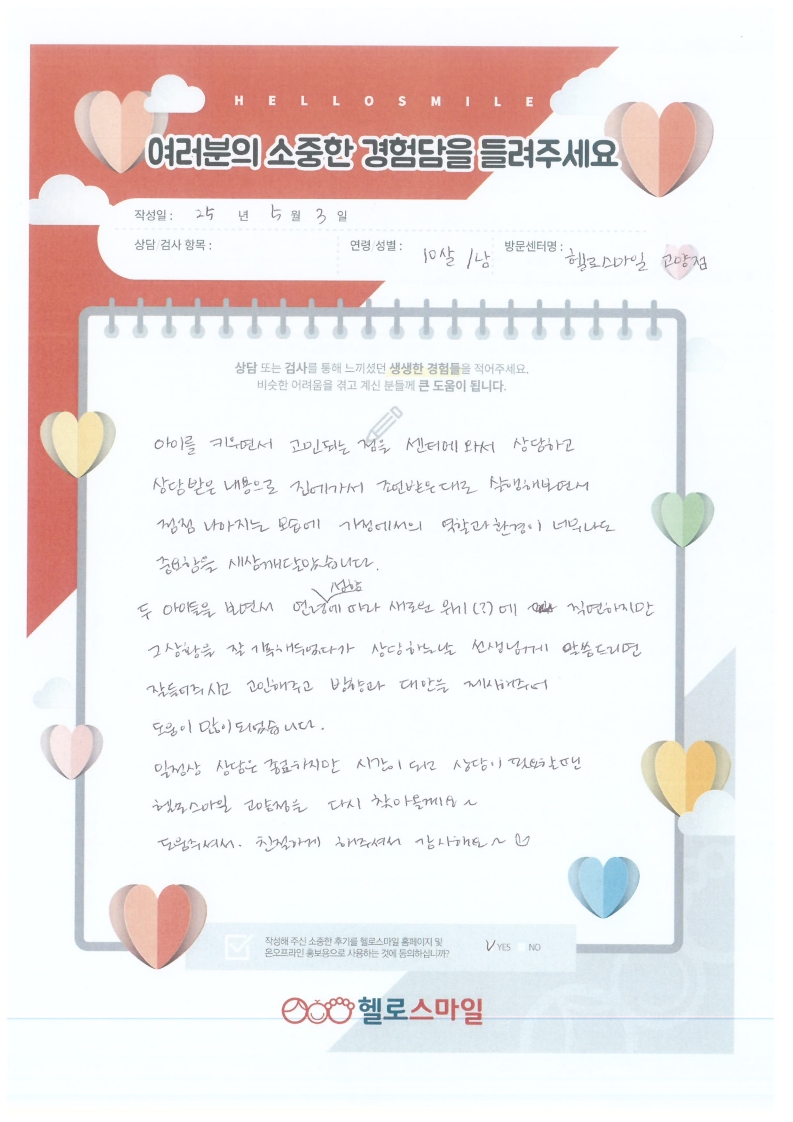 HELLOSMILE
여러분의 소중한 경험담을 들려주세요
작성일 : 25 년 5 월 3 일
상담/검사 항목 : 연령/성별 : 10살 /남 방문센터명 : 헬로스마일 고양점
상담 또는 검사를 통해 느끼셨던 생생한 경험들을 적어주세요.
비슷한 어려움을 겪고 계신 분들께 큰 도움이 됩니다.
아이를 키우면서 고민되는 점을 센터에 와서 상담하고
상담받은 내용으로 집에가서 조언받은대로 수행해보면서
점점 나아지는 모습에 가정에서의 역할과 환경이 너무나도
중요함을 새삼깨달았습니다.
성향
두 아이들을 보면서 연령에 따라 새로운 위기(?)에 직면하지만
그 상황을 잘 기록해두었다가 상담하는날 선생님께 말씀드리면
잘들어주시고 고민해주고 방향과 대안을 제시해주어
도움이 많이 되었습니다.
일정상 상담은 종료하지만 시간이 되고 상담이 필요할땐
헬로스마일 고양점을 다시 찾아올게요~
도움주셔서. 친절하게 해주셔서 감사해요~
작성해 주신 소중한 후기를 헬로스마일 홈페이지 및
온오프라인 홍보용으로 사용하는 것에 동의하십니까? V YES NO
헬로스마일